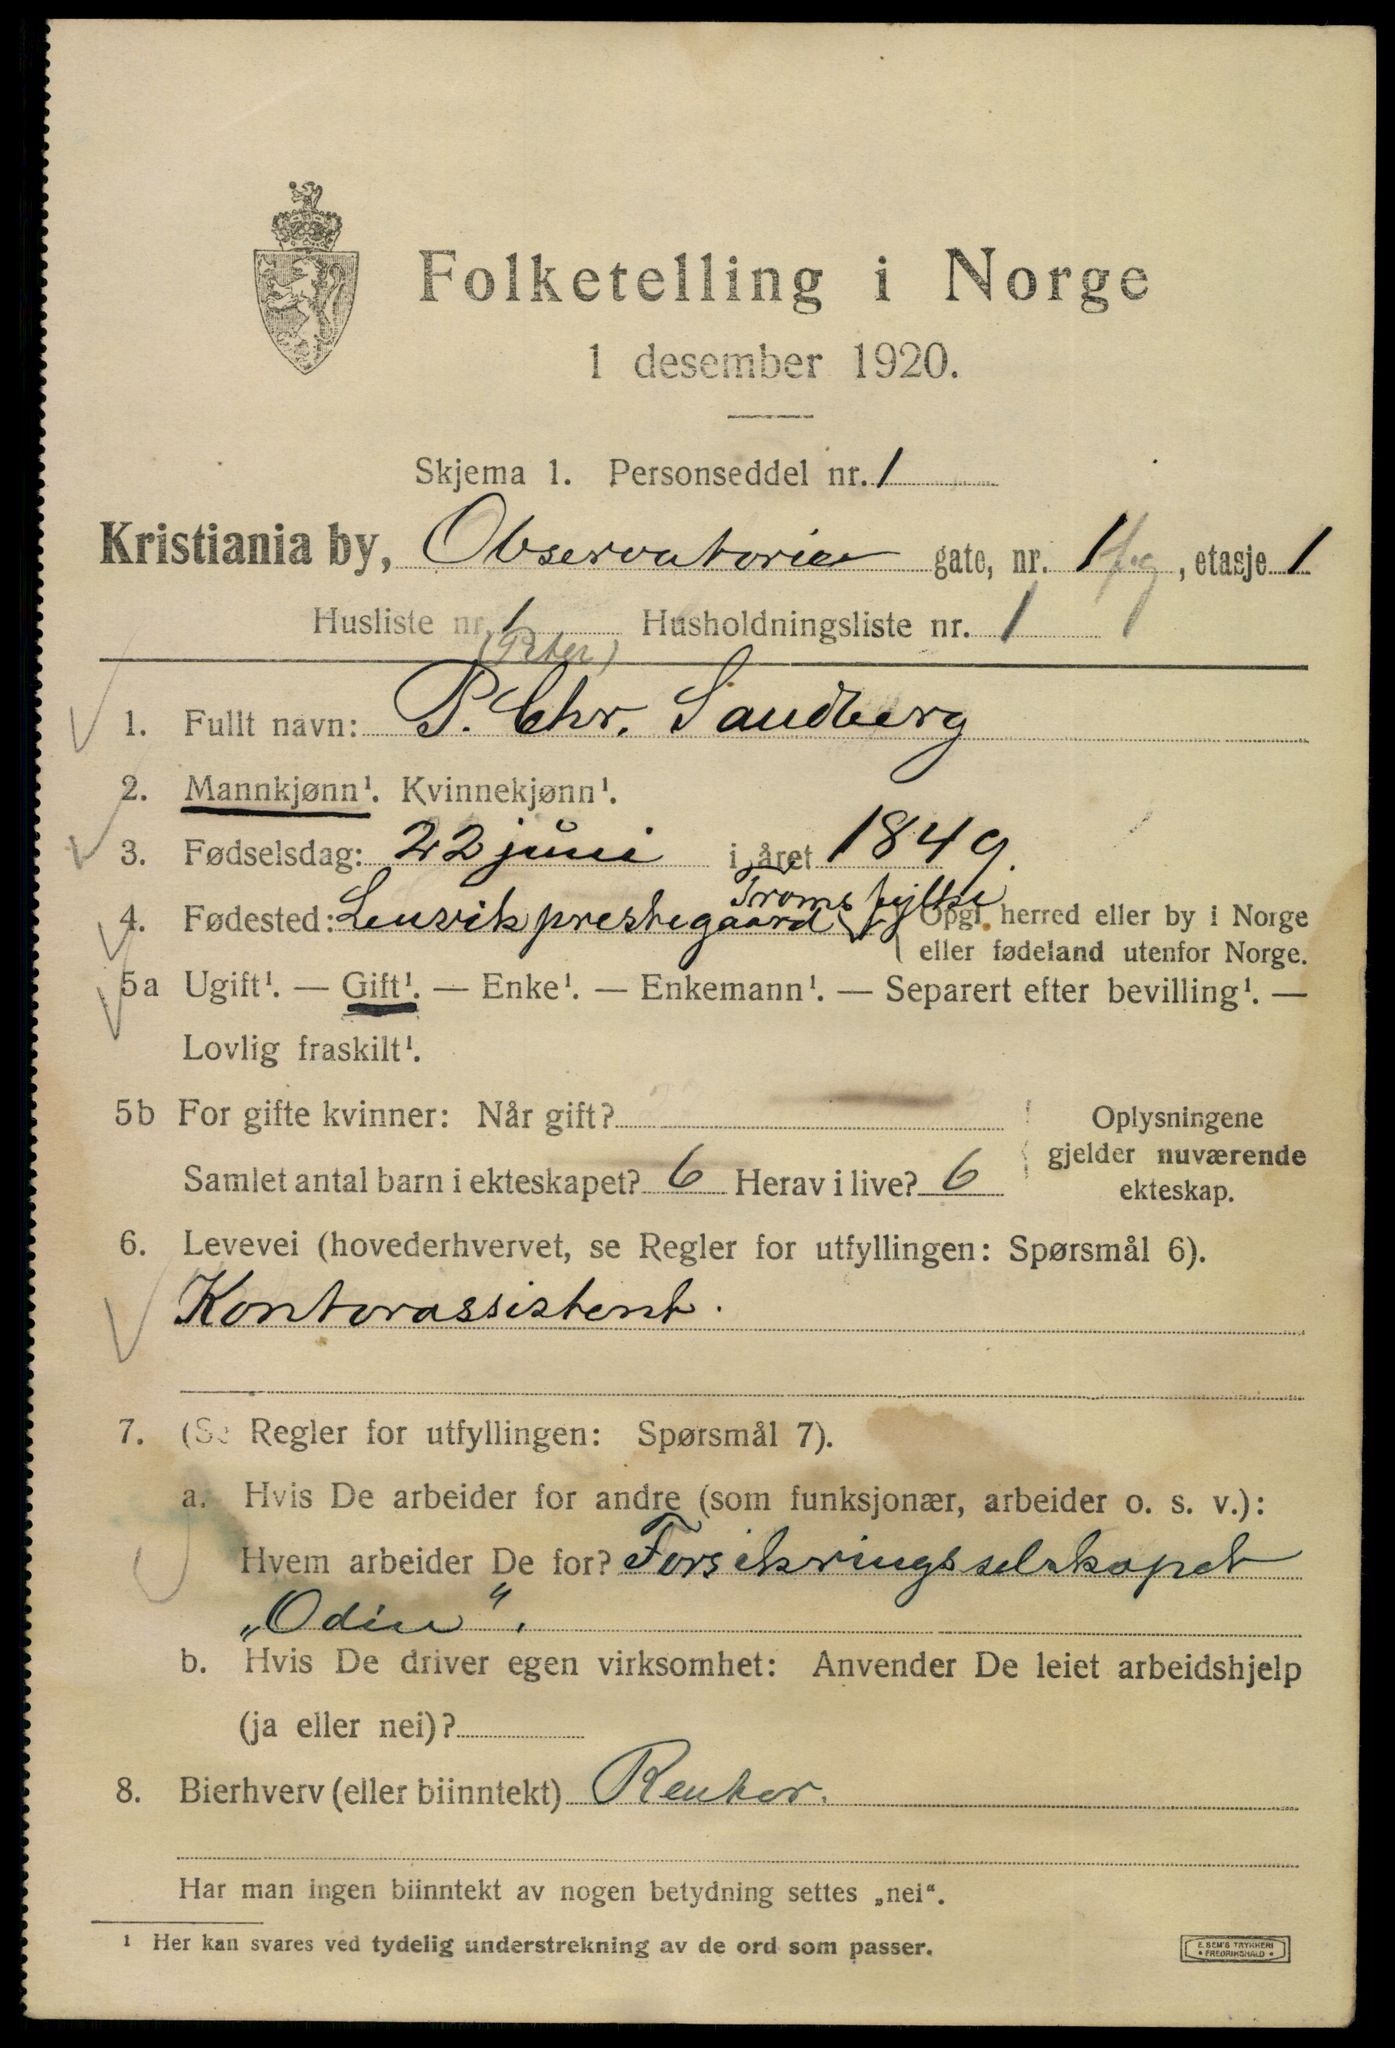 Folketelling i Norge
1 desember 1920.
Skjema 1. Personseddel nr. 1
Kristiania by, Observatorie gate, nr. 1 , etasje 1
Husliste nr. 1 Husholdningsliste nr. 1
(Peter)
1. Fullt navn: P. Chr. Sandberg
2. Mannkjønn¹. Kvinnekjønn¹.
3. Fødselsdag: 22 juni i året 1849.
Troms fylke
4. Fødested: Lenvik prestegaard { Opgi herred eller by i Norge
eller fødeland utenfor Norge.
5a Ugift¹. — Gift¹. — Enke¹. — Enkemann¹. — Separert efter bevilling¹. —
Lovlig fraskilt¹.
5b For gifte kvinner: Når gift?
Samlet antal barn i ekteskapet? 6 Herav i live? 6
Oplysningene
gjelder nuværende
ekteskap.
6. Levevei (hovederhvervet, se Regler for utfyllingen: Spørsmål 6).
Kontorassistent.
7. (Se Regler for utfyllingen: Spørsmål 7).
a. Hvis De arbeider for andre (som funksjonær, arbeider o. s. v.):
Hvem arbeider De for? Forsikringsselskapet
„Odin“.
b. Hvis De driver egen virksomhet: Anvender De leiet arbeidshjelp
(ja eller nei)?
8. Bierhverv (eller biinntekt) Renter.
Har man ingen biinntekt av nogen betydning settes „nei“.
¹ Her kan svares ved tydelig understrekning av de ord som passer.
E. SEM'S TRYKKERI
• FREDRIKSHALD •